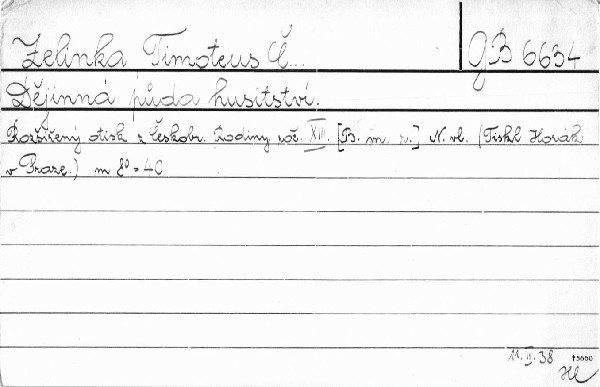 Zelinka Timoteus Č... GB 6634
Dějinná půda husitství.
Rozšířený otisk z Českobr. Rodiny roč. XIII. [B. m. r.] N. vl. (Tiskl Horák
v Praze.) m 8° - 40
11. II. 38
Hl